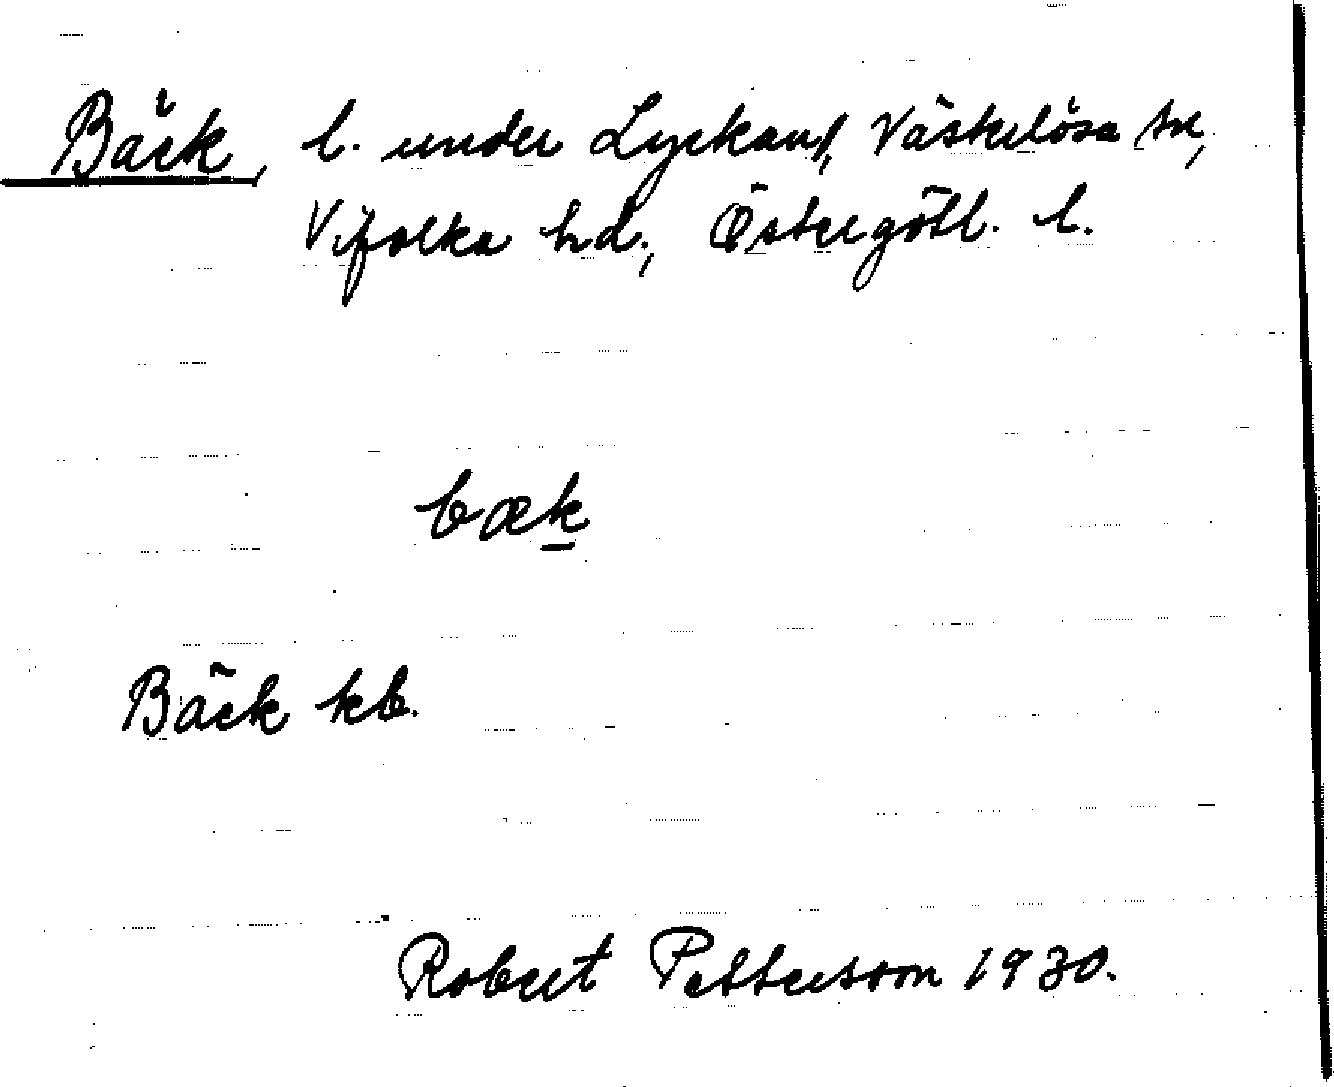 Bäck, l. under Lyckan, Väskelösa sn,
Vifolka hd., Östergötl. l.
bæk
Bäck kb.
Robert Pettersson 1930.